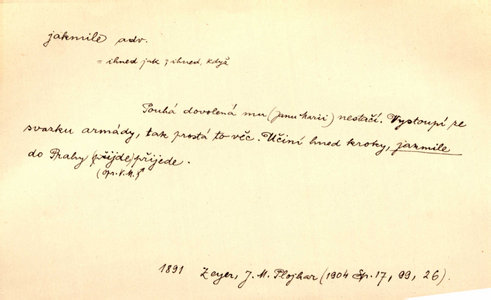 jakmile adv.
= ihned jak, ihned, když
Pouhá dovolená mu (jemu Karii) nestačí. Vystoupí ze
svazku armády, tak prostá to věc. Učiní hned kroky, jakmile
do Prahy (přijde) přijede.
(Op. V. M.)
1891 Zeyer, J. M. Plojhar (1904 Sp. 17, 99, 26).